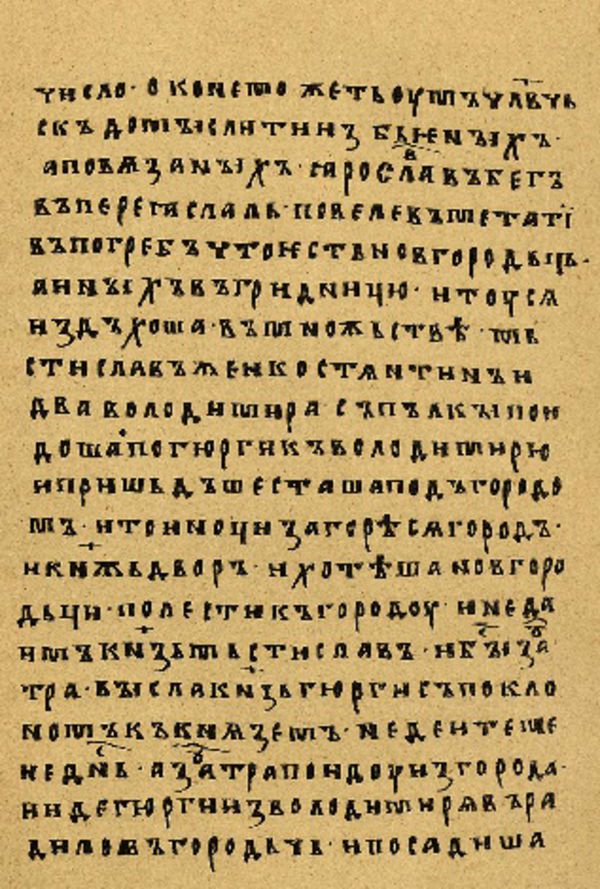 число· оконемо жетьоумъчл҃вчь
скъ домъислитииз бьеныхъ·
аповѧзаныхъ· ꙗрославъвбегъ
въпереꙗслаль· повелевъметаті
въпогребъчтоѥстьновгородьць·
анныхъвъгридьницю· итоусѧ
издъхоша· въмножьствѣ· мь
стиславъжеикостѧнтинъи
два володимира съпълкыпои
дошапогюргикъволодимирю
ипришьдъшесташаподъгородо
мъ· итоиночизагорѣсѧгородъ·
икн҃жьдворъ· ихотѣшановгоро
дьци· полестикъгородоу· инеда
имъкнѧзьмьстиславъ· ибы҇за
тра· выслакн҃зьгюргисъпокло
номъкъкнѧземъ· недеитеме
недн҇ь· азаⷹтрапоидоуизгорода·
идегюргиизволодимирѧвъра
диловъгородьць· ипосадиша